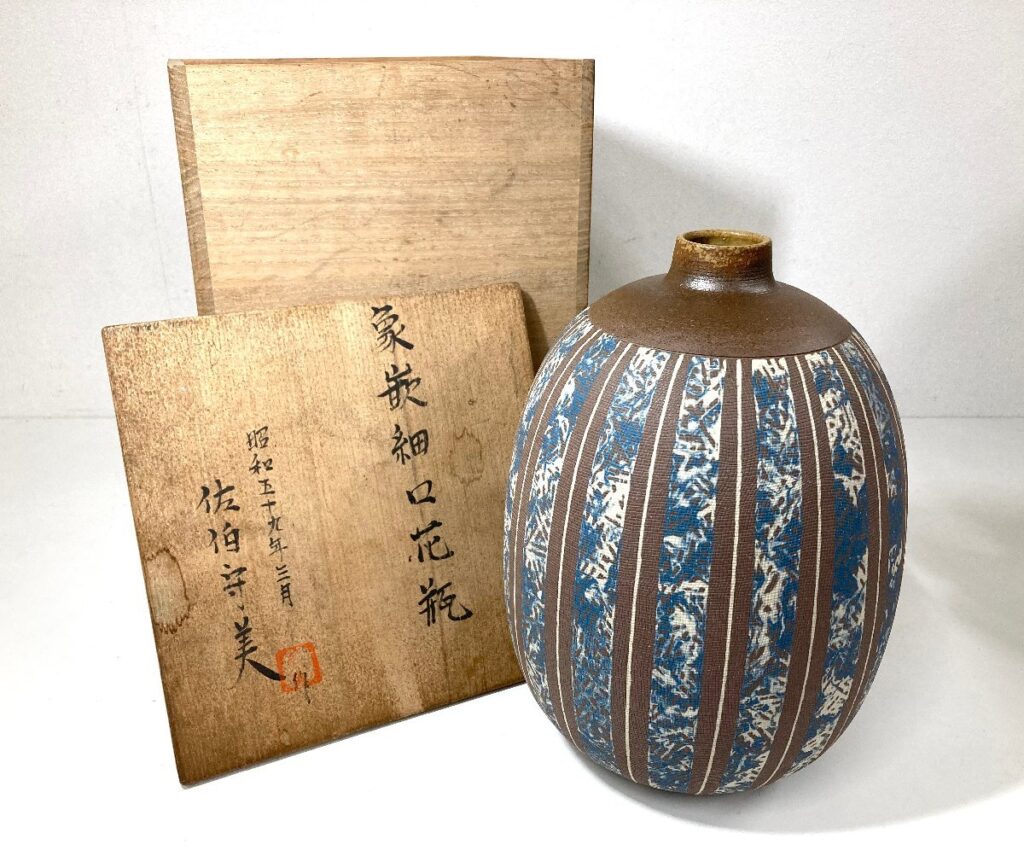 象嵌細口花瓶
昭和五十九年三月
佐伯守美